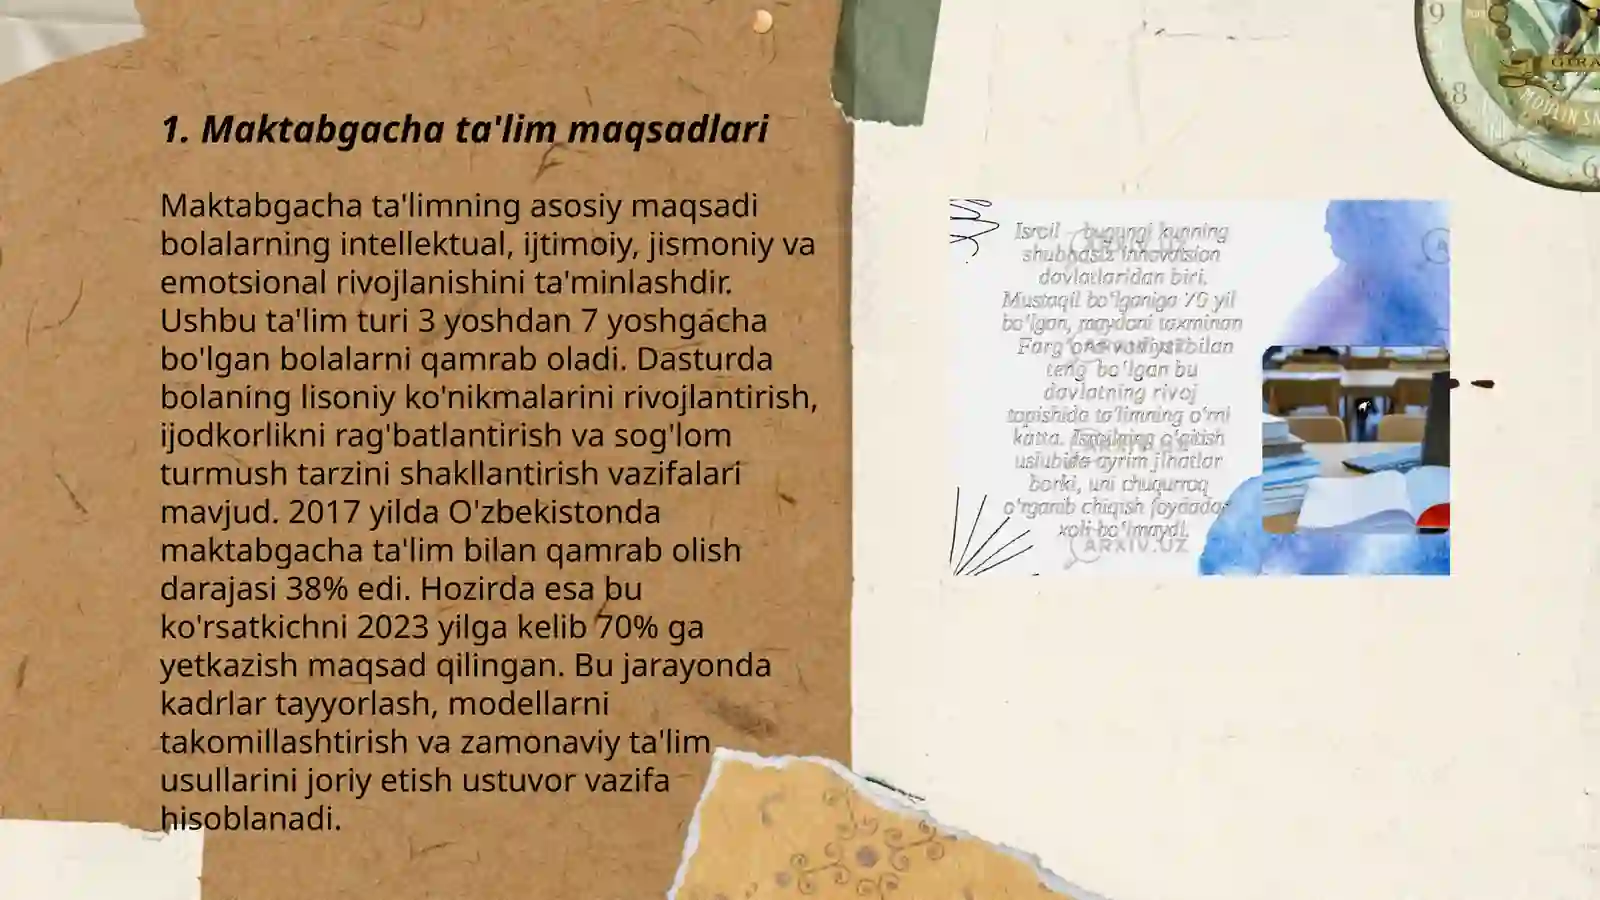 1. Maktabgacha ta'lim maqsadlari
Maktabgacha ta'limning asosiy maqsadi
bolalarning intellektual, ijtimoiy, jismoniy va
emotsional rivojlanishini ta'minlashdir.
Ushbu ta'lim turi 3 yoshdan 7 yoshgacha
bo'lgan bolalarni qamrab oladi. Dasturda
bolaning lisoniy ko'nikmalarini rivojlantirish,
ijodkorlikni rag'batlantirish va sog'lom
turmush tarzini shakllantirish vazifalari
mavjud. 2017 yilda O'zbekistonda
maktabgacha ta'lim bilan qamrab olish
darajasi 38% edi. Hozirda esa bu
ko'rsatkichni 2023 yilga kelib 70% ga
yetkazish maqsad qilingan. Bu jarayonda
kadrlar tayyorlash, modellarni
takomillashtirish va zamonaviy ta'lim
usullarini joriy etish ustuvor vazifa
hisoblanadi.
Isroil – bugungi kunning
shubhasiz innovatsion
davlatlaridan biri.
Mustaqil bo'lganiga 70 yil
bo'lgan, maydoni taxminan
Farg'ona vodiysi bilan
teng bo'lgan bu
davlatning rivoj
topishida ta'limning o'rni
katta. Isroilning o'qitish
uslubida ayrim jihatlar
borki, uni chuqurroq
o'rganib chiqish foydadan
xoli bo'lmaydi.
ARXIV.UZ
9
8
6
GIRA
MOULIN